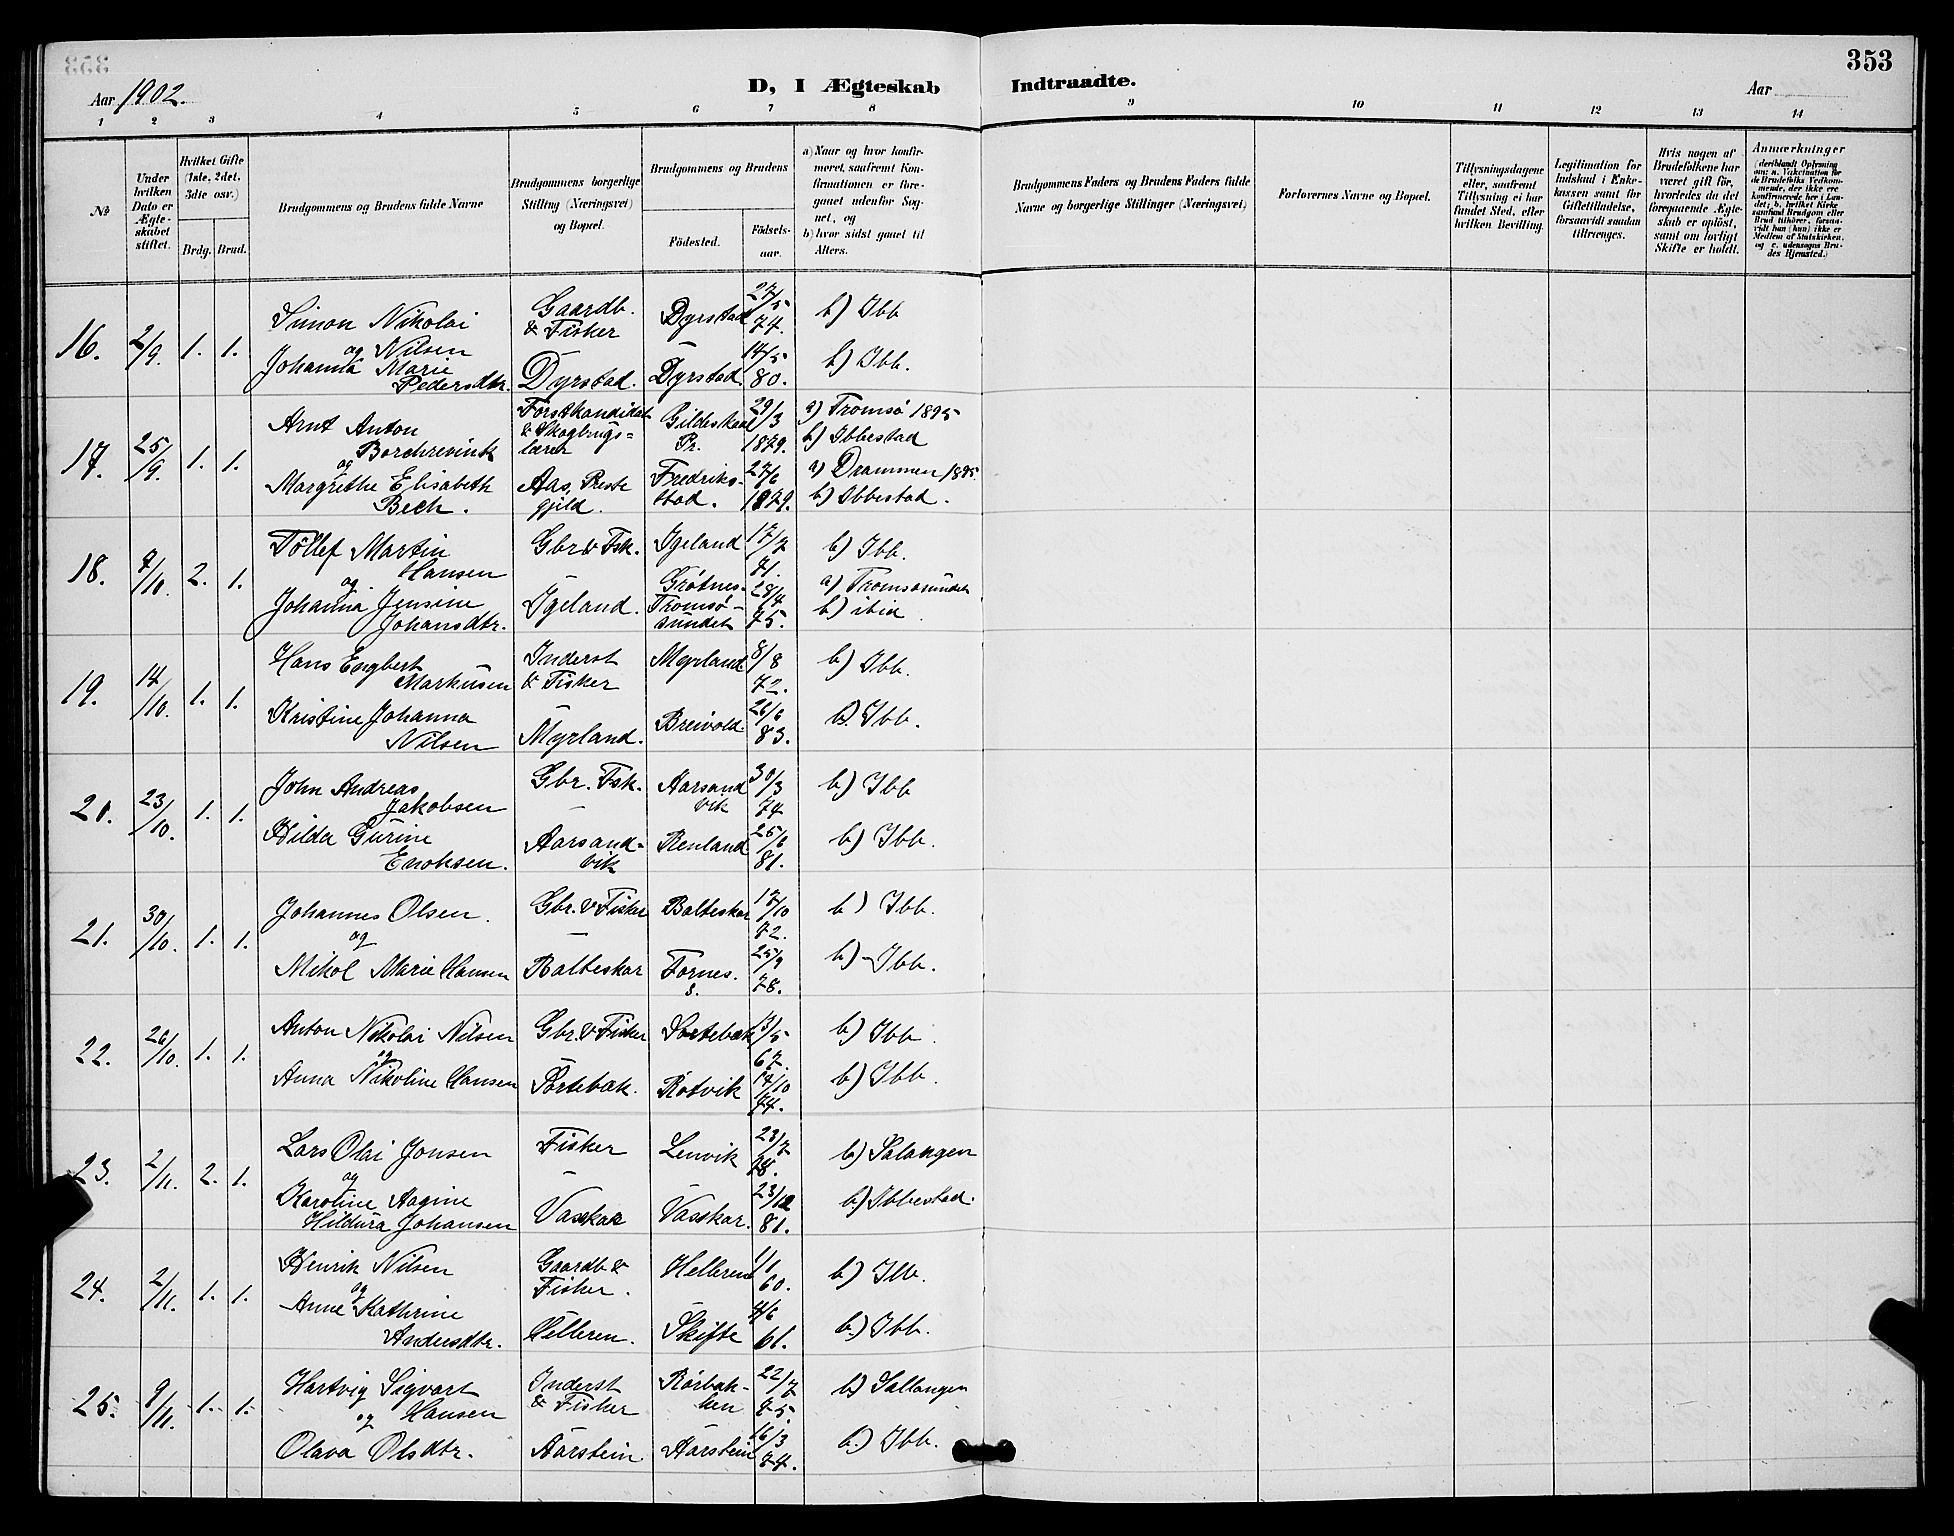 353
Aar 1902.
D, I Ægteskab Indtraadte.
Aar
1 2 3 4 5 6 7 8 9 10 11 12 13 14
No
Under hvilken Dato er Ægteskabet stiftet.
Hvilket Gifte (1ste, 2det, 3die osv.)
Brdg. Brud.
Brudgommens og Brudens fulde Navne
Brudgommens borgerlige Stilling (Næringsvei) og Bopæl.
Brudgommens og Brudens
Födested.
Födselsaar.
a) Naar og hvor konfirmeret, saafremt Konfirmationen er foregaaet udenför Sognet, og
b) hvor sidst gaaet til Alters.
Brudgommens Faders og Brudens Faders fulde Navne og borgerlige Stillinger (Næringsvei)
Forlovernes Navne og Bopæl.
Tillysningsdagene eller, saafremt Tillysning ei har fundet Sted, efter hvilken Bevilling.
Legitimation for Indskud i Enkekassen samt for Giftetilladelse, forsaavidt saadan tiltrænges.
Hvis nogen af Brudefolkene har været gift för, hvorledes da det foregaaende Ægteskab er oplöst, samt om lovligt Skifte er holdt.
Anmærkninger (deriblandt Oplysning om: a. Vakcination for de Brudefolks Vedkommende, der ikke ere konfirmerede her i Landet; b. hvilket Kirkesamfund Brudgom eller Brud tilhörer, forsaavidt han (hun) ikke er Medlem af Statskirken, og c. udensogns Brudes Hjemsted.)
16. 2/9. 1. 1.
Simon Nikolai Nilsen
og
Johanna Marie Pedersdtr.
Gaardb. & Fisker
Dyrstad.
Dyrstad 27/5 74. b) Ibb
Dyrstad 14/5 80. b) Ibb.
17. 25/9. 1. 1.
Arnt Anton Borchrevink
og
Margrethe Elisabeth Bech.
Forstkandidat & Skogbrugslærer
Aas, Præstegjeld.
Gildeskaal Pr. 29/3 1879. a) Tromsö 1895 b) Ibbestad
Fredrikstad. 27/6 1879. a) Drammen 1895 b) Ibbestad.
18. 7/10. 2. 1.
Töllef Martin Hansen
og
Johanna Jensine Johansdtr.
Gbr & Fsk.
Igeland.
Igeland 17/7 71. b) Ibb.
Grötnes. Tromsösundet 28/4 75. a) Tromsösundet b) ibid
19. 14/10. 1. 1.
Hans Engbert Markusen
Kristine Johanna Nilsen
Inderst & Fisker
Myrland.
Myrland 8/8 72. b) Ibb.
Breivold. 26/6 83. b. Ibb.
20. 23/10. 1. 1.
John Andreas Jakobsen
Hilda Gurine Enoksen.
Gbr. Fsk.
Aarsandvik
Aarsandvik 30/3 74 b) Ibb
Renland 25/6 81. b) Ibb.
21. 30/10. 1. 1.
Johannes Olsen.
og
Mikol Marie Hansen
Gbr. & Fisker
Balteskar
Balteskar 17/10 72. b) Ibb.
Fornes. s. 25/9 78. b) Ibb.
22. 26/10. 1. 1.
Anton Nikolai Nilsen
og
Anna Nikoline Hansen
Gbr. & Fisker
Sörtebæk.
Sortebæk 13/5 67. b) Ibb
Rotvik 14/10 74. b) Ibb.
23. 2/11. 2. 1.
Lars Olai Jonsen
og
Karoline Aagine Hildura Johansen
Fisker
Vasskar
Lenvik 23/7 78. b) Salangen
Vasskar. 23/12 81. b) Ibbestad.
24. 2/11. 1. 1.
Henrik Nilsen
og
Anne Kathrine Andersdtr.
Gaardb & Fisker.
Helleren.
Helleren 1/1 60. b) Ibb.
Skifte 4/6 61. b.) Ibb.
25. 9/11. 1. 1.
Hartvig Sigvart Hansen
og
Olava Olsdtr.
Inderst & Fisker
Aarstein
Rörbakken 22/7 75. b) Sallangen
Aarstein 16/3 74. b.) Ibb.